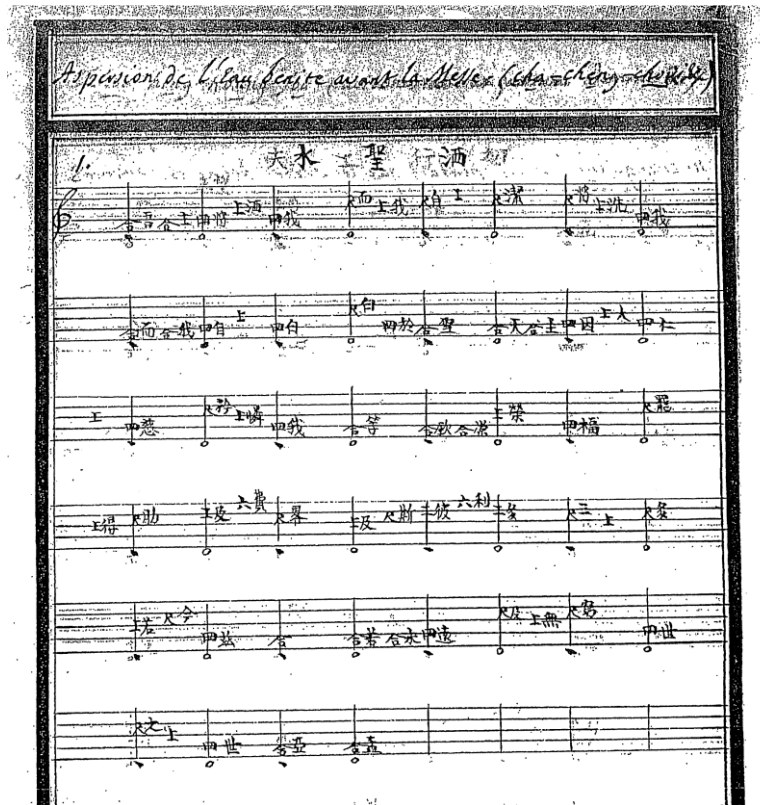 Aspersion de l'Eau benite avant la Messe
1.
水 聖 行 洒
合吾 合主 四将 上洒 四我 尺而 上我 尺自 上 尺潔 尺将 上洗 四我
合而 合我 四自 上 四白 尺白 四於 合聖 合天 合主 四因 上大 四仁
上 四慈 尺矜 上憐 四我 合等 合欽 合 榮 四福 尺罷
上得 尺助 工及 六費 尺畧 工及 尺斯 工彼 六利 工多 尺三 上 尺多
工若 尺今 四兹 合 合若 合永 四遠 尺及 上無 尺窮 四世
尺之 上 四世 合亞 合孟